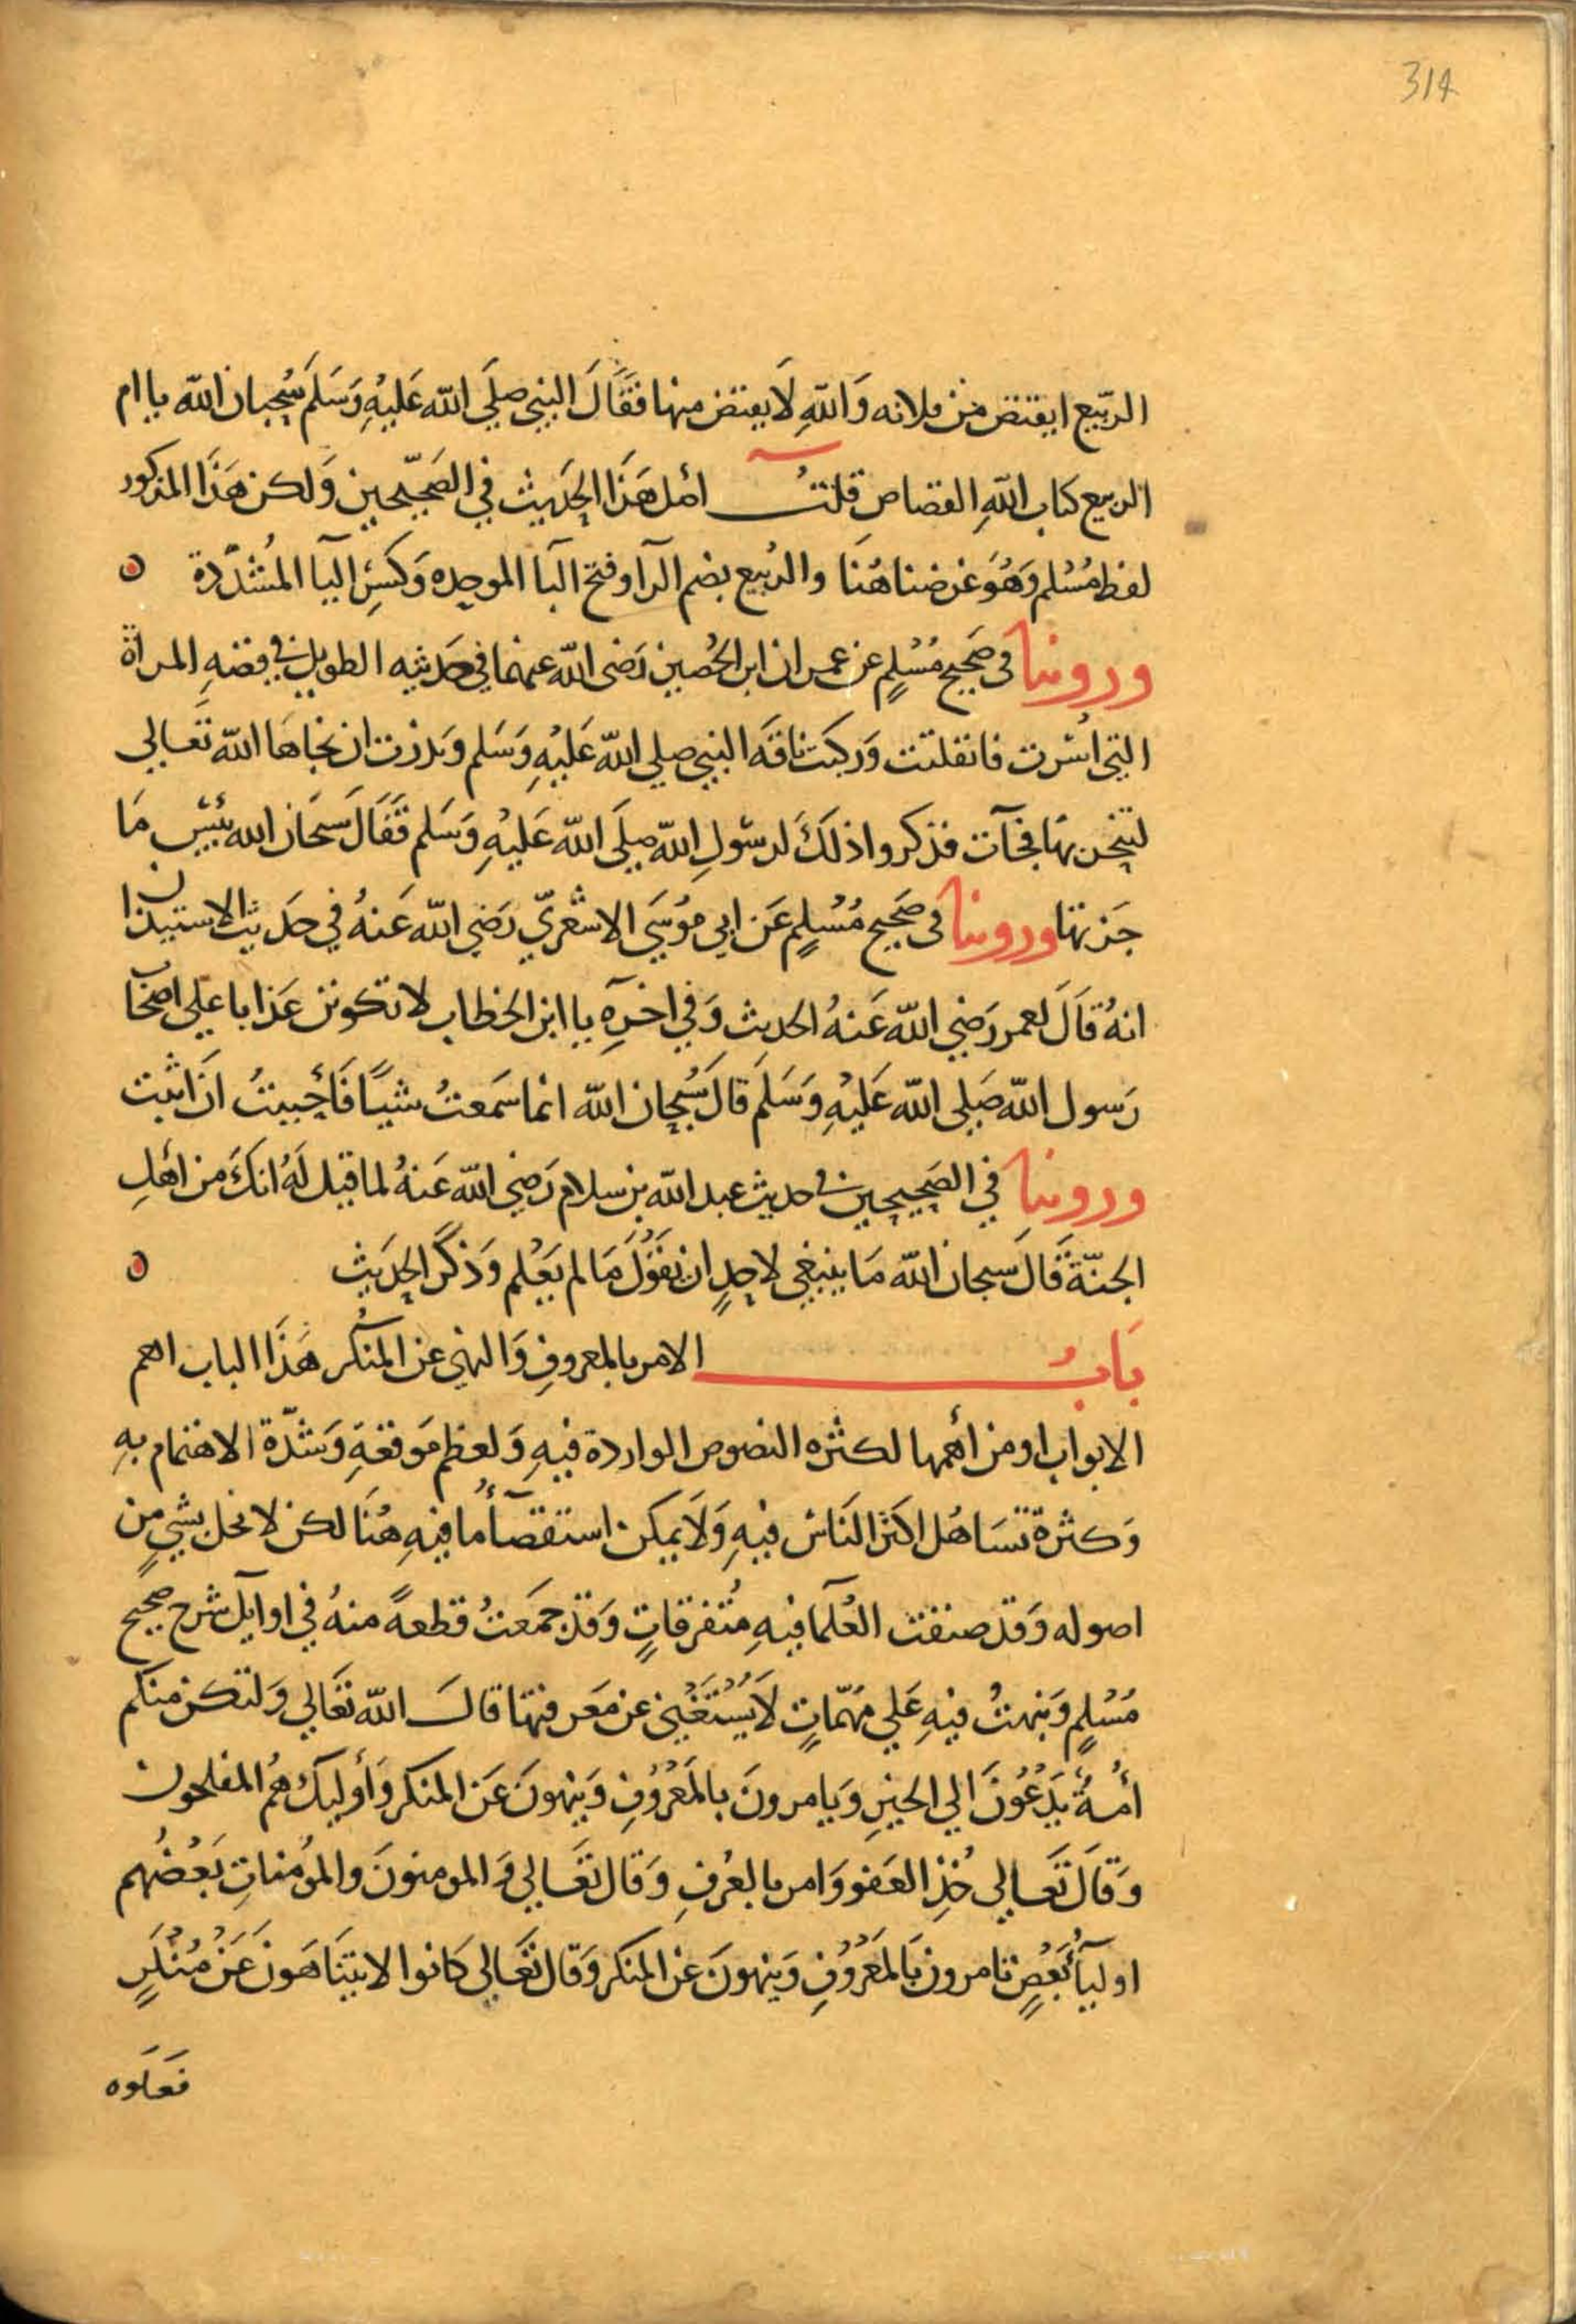 314
الربيع ايقتص من فلانه وَاللهِ لَا يقتص منها فقَالَ النبي صلَي الله عَليهِ وَسَلمَ سُبحان الله يا ام
الربيع كتاب اللهِ القصاص قلتُ اصل هَذَا الحَديث في الصَحيحين وَلكن هَذَا المذكور
لفظ مُسْلم وَهُوَ غرضنا هُنَا والرُبيع بضم الرآ وفتح البا الموحده وَكسْر اليا المُشدّدة ه
وروينا في صَحيح مُسْلمٍ عن عمران ابن الحُصين رَضى الله عنهما في حَديثه الطويل في قصَهِ المراة
التي اُسْرت فانفلتت وَركبَت ناقَه النبي صلي الله عَليْهِ وَسَلم وَنذرت ان نجاهَا الله تَعَالي
لتنحرنهَا فجآت فذكروا ذلَكَ لرسُولِ الله صلَي الله عَليْهِ وَسَلم فَقَالَ سبحَان الله بئسَ مَا
جَزتهَا وروينا في صَحيح مُسْلمٍ عَن ابي مُوسَي الاشعَريّ رَضي الله عَنهُ في حَديث الاستيذان
انهُ قالَ لعمر رَضي الله عَنهُ الحديث وَفي اخرِهِ يا ابن الخطاب لا تكونن عَذابا علي اصحَا
رَسول الله صَلي الله عَليْهِ وَسَلمَ قالَ سُبحان الله انما سَمعتُ شيًا فَأحْببتُ ان اثبت
وروينا في الصَحيحين في حديث عبد الله بن سلام رَضي الله عَنهُ لما قيل لَهُ انكَ من اهلِ
الجنّة قَالَ سبحان الله مَا ينبغي لاحدٍ ان يقَوُلَ مَا لم يعَلم وَذكرَ الحَديث ه
بَابُ الامر بالمعروفِ وَالنهي عن المنُكر هَذَا الباب اهم
الابواب او من أهمها لكثره النصوص الواردة فيهِ وَلعظم مَوقعَهِ وَشدّة الاهتمام بهِ
وَكثرة تسَاهُل اكثر الناس فيهِ وَلَا يمكن استقصآُ ما فيهِ هُنَا لكن لا نخل بشي مِن
اصوله وَقد صنفت العُلمآ فيهِ مُتفرقاتٍ وَقد جمَعتُ قطعهً منهُ في اوايل شرح صحيح
مُسْلمٍ وَنبهتُ فيهِ عَلي مُهمّاتٍ لَا يُسْتَغَني عن مَعرفتهَا قالَ الله تعَالي وَلتكن منكم
أمُةٌ يَدْعُونَ الي الخيرِ وَيامرونَ بالمعَرُوُفِ وَينهونَ عَن المنكر وَأوليكَ هُم المفلحون
وَقالَ تَعَالي خُذِ العَفو وَامر بالعُرفِ وَقال تعَالي وَالمومنونَ والمؤُمناتِ بَعْضُهم
اوليآُ بَعْضٍ تامرون بَالمَعْرُوُفِ وَينهونَ عَن المنكر وَقال تعَالي كَانوا لا يتنَاهَونَ عَن مُنْكَرٍ
فعَلوه